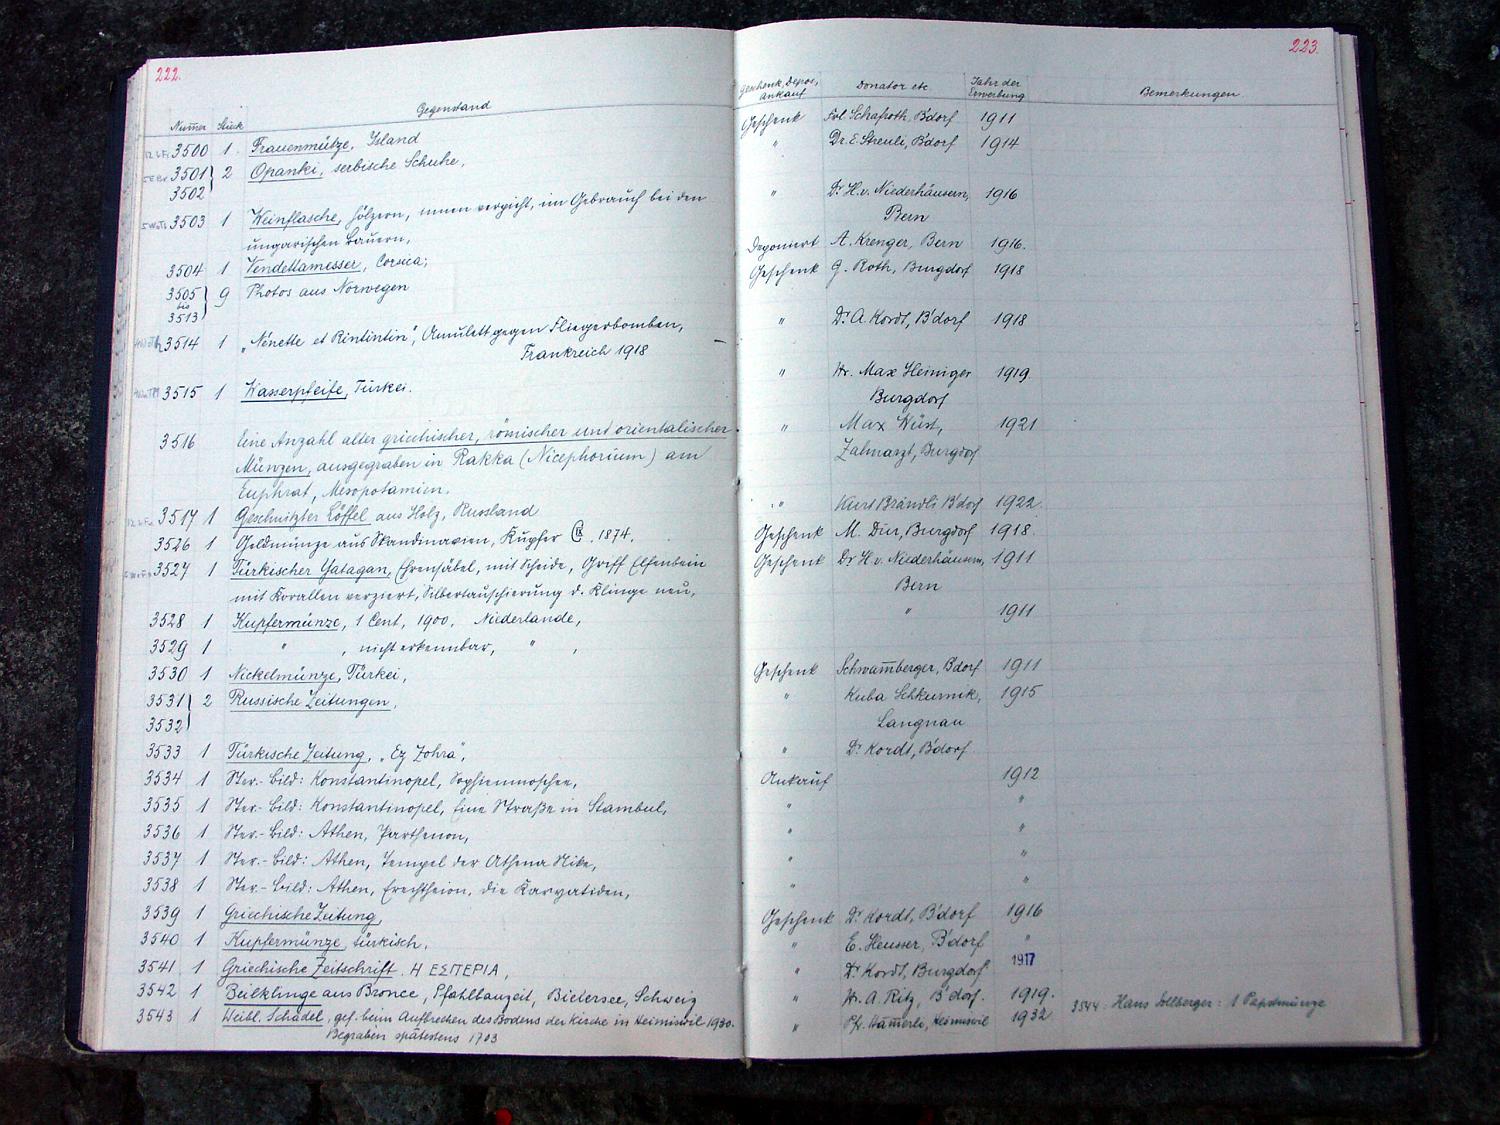 222.
Numer Stück Gegenstand
3500 1 Frauenmütze, Island
3501 } 2 Opanki, serbische Schuhe,
3502
3503 1 Weinflasche, hölzern, innen verpicht, im Gebrauch bei den
ungarischen Bauern,
3504 1 Vendettamesser, Corsica;
3505 } 9 Photos aus Norwegen
bis
3513
3514 1 „Nénette et Rintintin", Amulett gegen Fliegerbomben,
Frankreich 1918
3515 1 Wasserpfeife, Türkei.
3516 Eine Anzahl alter griechischer, römischer und orientalischer
Münzen, ausgegraben in Rakka (Nicephorium) am
Euphrat, Mesopotamien.
3517 1 Geschnitzter Löffel aus Holz, Russland
3526 1 Geldmünze aus Skandinavien, Kupfer 1874.
3527 1 Türkischer Yatagan, Ehrensäbel, mit Scheide, Griff Elfenbein
mit Korallen verziert, Silbertauschierung d. Klinge neu,
3528 1 Kupfermünze, 1 Cent, 1900, Niederlande,
3529 1 " , nicht erkennbar, " ,
3530 1 Nickelmünze, Türkei,
3531 } 2 Russische Zeitungen,
3532
3533 1 Türkische Zeitung, „Ez Zohra",
3534 1 Ster.-Bild: Konstantinopel, Sophienmoschee,
3535 1 Ster.-Bild: Konstantinopel, Eine Straße in Stambul,
3536 1 Ster.-Bild: Athen, Parthenon,
3537 1 Ster.-Bild: Athen, Tempel der Athena Nike,
3538 1 Ster.-Bild: Athen, Erechtheion, die Karyatiden,
3539 1 Griechische Zeitung,
3540 1 Kupfermünze, türkisch,
3541 1 Griechische Zeitschrift. Η ΕΣΠΕΡΙΑ,
3542 1 Beilklinge aus Bronce, Pfahlbauzeit, Bielersee, Schweiz
3543 1 Weibl. Schädel, gef. beim Aufbrechen des Bodens der Kirche in Heimiswil 1930.
Begraben spätestens 1703
223.
Geschenk, Depos, Ankauf Donator etc Jahr der Erwerbung Bemerkungen
Geschenk Frl Schafroth, B'dorf 1911
" Dr. E. Streuli, B'dorf 1914
" Dr H. v. Niederhäusern, 1916
Bern
Deponiert A. Krenger, Bern 1916.
Geschenk G. Roth, Burgdorf 1918
" Dr. A. Kordt, B'dorf 1918
" Hr. Max Heiniger 1919.
Burgdorf
" Max Wüst, 1921
Zahnarzt, Burgdorf
" Kurt Brändli B'dorf 1922.
Geschenk M. Dür, Burgdorf 1918.
Geschenk Dr H. v. Niederhäusern, 1911
Bern
" 1911
Geschenk Schwammberger, B'dorf 1911
" Kuba Schkurnik, 1915
Langnau
" Dr Kordt, B'dorf
Ankauf 1912
" "
" "
" "
" "
Geschenk Dr. Kordt, B'dorf 1916
" E. Heusser, B'dorf "
" Dr Kordt, Burgdorf 1917
" Hr. A. Ritz, B'dorf. 1919.
" Pfr. Hämmerli, Heimiswil 1932
3544. Hans Sollberger: 1 Papstmünze